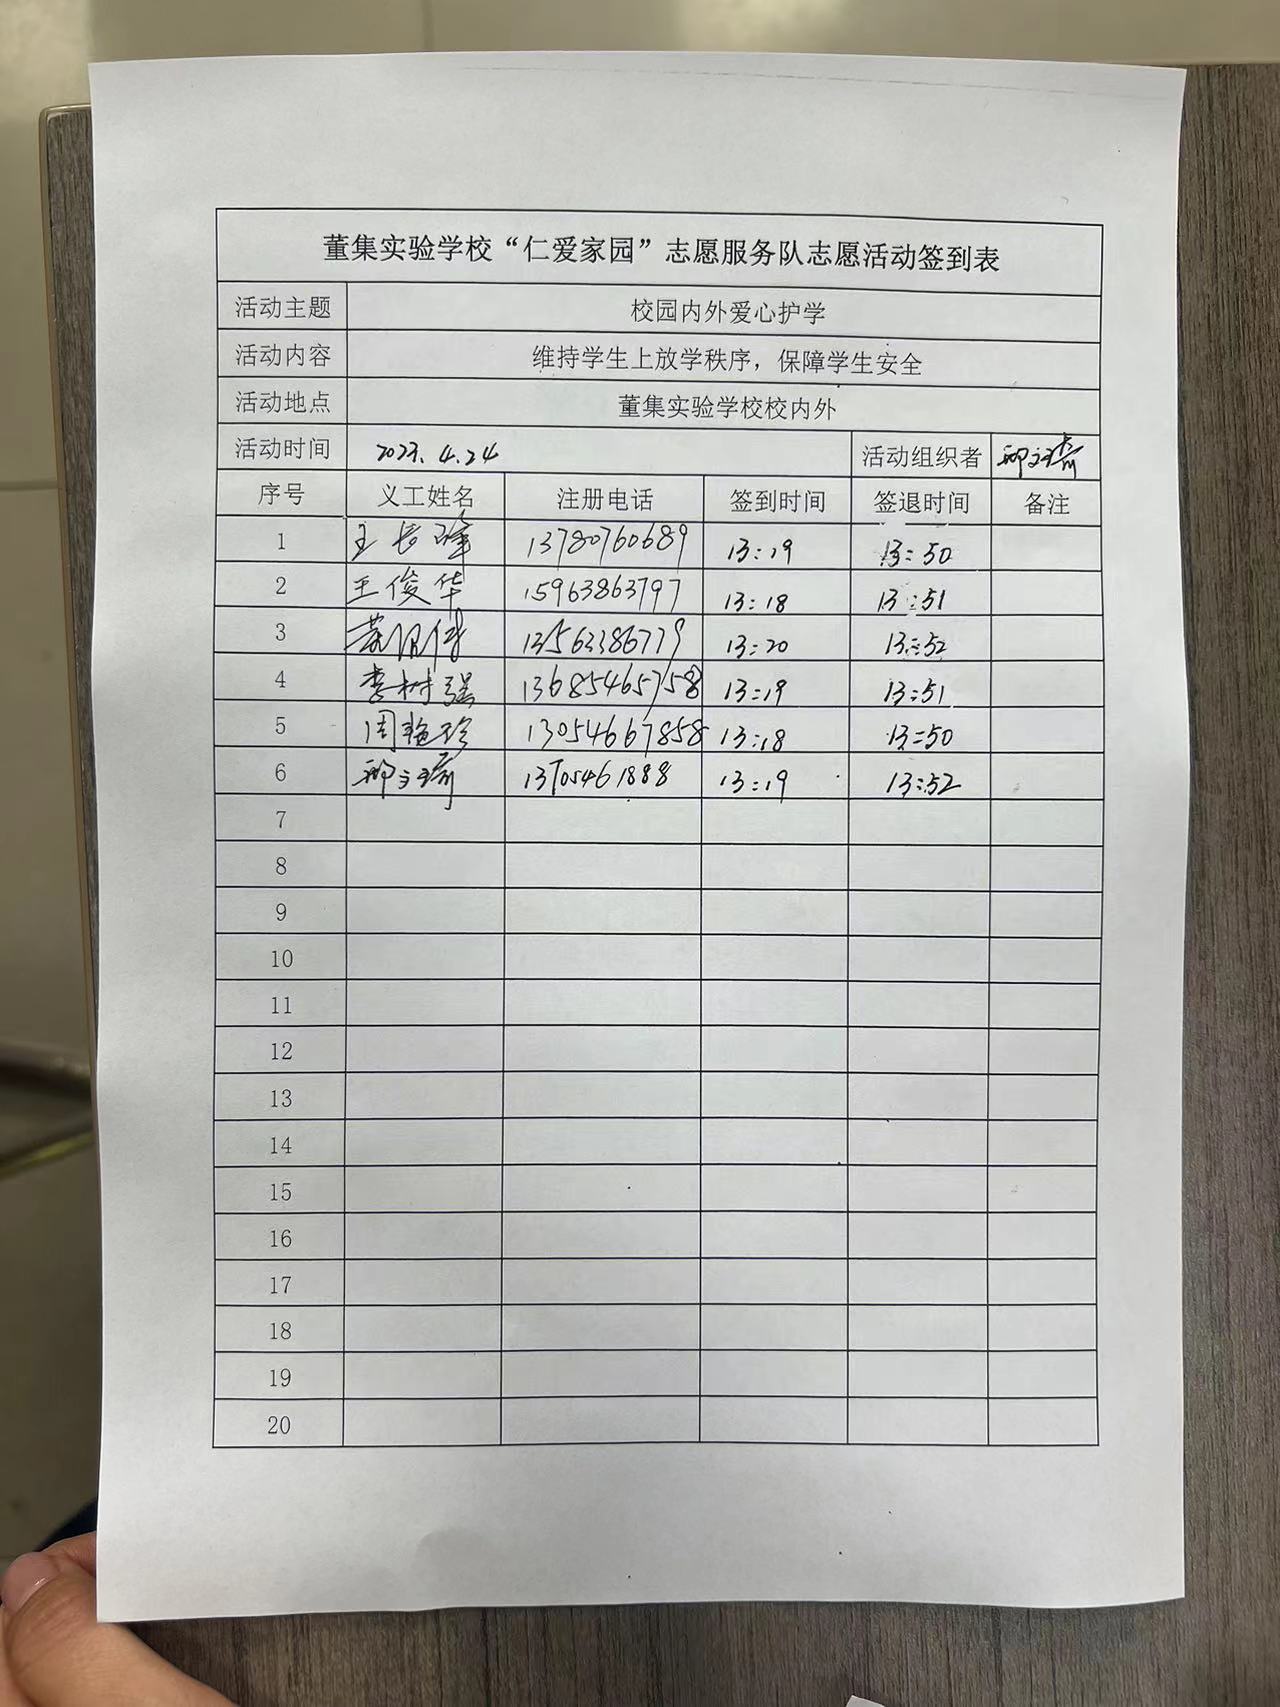 董集实验学校“仁爱家园”志愿服务队志愿活动签到表
活动主题 校园内外爱心护学
活动内容 维持学生上放学秩序，保障学生安全
活动地点 董集实验学校校内外
活动时间 2023.4.24 活动组织者
序号 义工姓名 注册电话 签到时间 签退时间 备注
1 王长峰 13780760689 13:19 13:50
2 王俊华 15963863797 13:18 13:51
3 13:20 13:52
4 李树强 13685465758 13:19 13:51
5 周艳珍 13054667858 13:18 13:50
6 13705461888 13:19 13:52
7
8
9
10
11
12
13
14
15
16
17
18
19
20